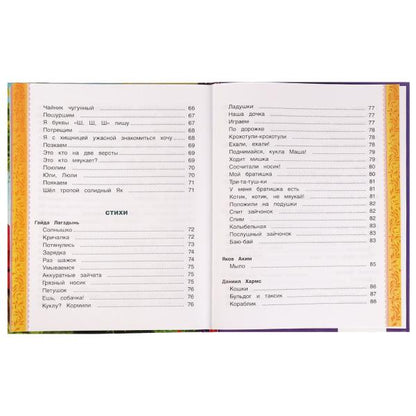 Чайник чугунный 66
Пошуршим 67
Я буквы «Ш, Ш, Ш» пишу 67
Потрещим 68
Я с хищницей ужасной знакомиться хочу 68
Позкаем 69
Это кто на две версты 69
Это кто мяукает? 69
Поюлим 70
Юли, Юлы 70
Поякаем 71
Шёл тропой солидный Як 71
СТИХИ
Гайда Лагздынь
Солнышко 72
Кричалка 72
Потянулись 72
Зарядка 74
Раз шажок 74
Умываемся 74
Аккуратные зайчата 74
Грязный носик 75
Петушок 76
Ешь, собачка! 76
Куклу? Кормили 76
Ладушки 77
Наша дочка 77
Играем 77
По дорожке 78
Крохотули-крохотули 78
Ехали, ехали! 78
Поднимайся, кукла Маша! 79
Ходит мишка 79
Сосчитали носик! 80
Мой братишка 80
Три-та-туш-ки 81
У меня братишка есть 81
Котик, котик, не мяукай! 81
Положили на подушки 82
Спит зайчонок 82
Спим 82
Колыбельная 83
Послушный зайчонок 83
Баю-бай 83
Яков Аким
Мыло 85
Даниил Хармс
Кошки 86
Бульдог и таксик 86
Кораблик 88